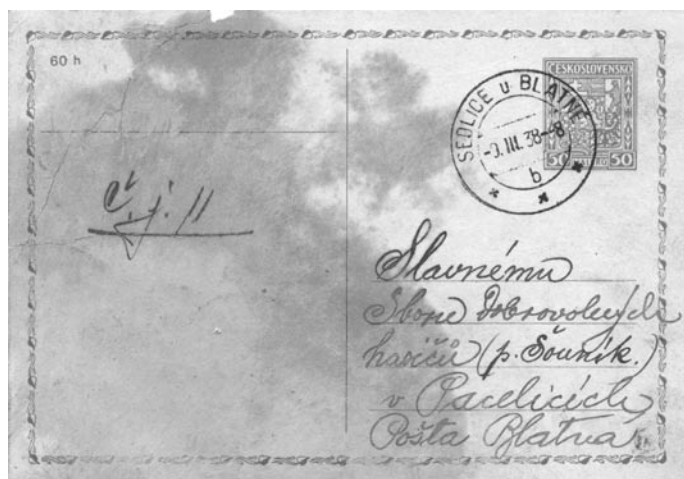 60 h
ČESKOSLOVENSKO
50 50
SEDLICE u BLATNÉ
-9. III. 38 -8
b
č. j. 11
Slavnému
Sboru Dobrovolných
hasičů (p. Šouník.)
v Pacelicích
Pošta Blatná